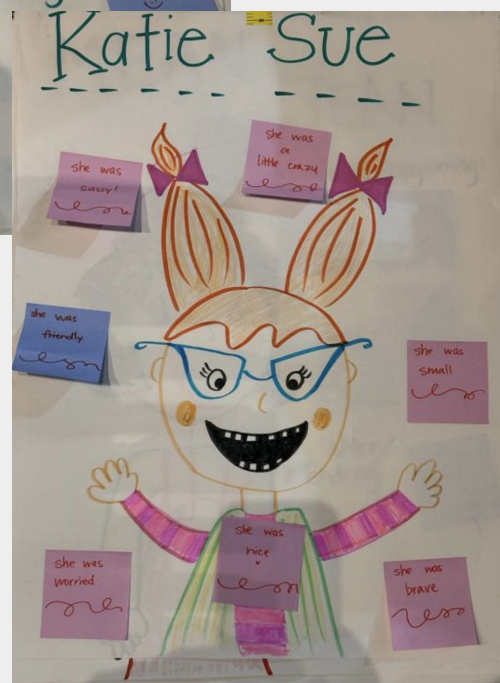 Katie Sue
she was
sassy!
she was
a
little crazy
she was
friendly
she was
small
she was
nice
she was
worried
she was
brave